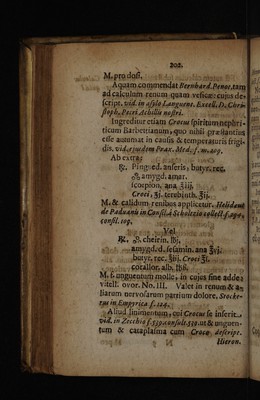 202.
M. pro dosi.
Aquam commendat Bernhard. Penot. tam
ad calculum renum quam vesicæ: cujus de-
script. vid. in asylo Languent. Excell. D. Chri-
stoph. Petri Achiliis nostri.
Ingreditur etiam Crocus spiritum nephri-
ticum Barbetrianum, quo nihil præstantius
esse automat in causis & temperaturis frigi-
dis. vid. ejusdem Prax. Med. f. m. 209.
Ab extra:
℞. Ping. ed. anseris, butyr. rec.
amygd. amar.
scorpion. ana ℥iij.
Croci, ʒj. terebinth. ℥ij.
M. & calidum renibus applicetur.
de Paduanis in Consil. à Scholtzio collect. f. 290.
consil. 109.
Vel
℞. cheirin. ℔j.
amygd. d. sesamin. ana ℥vj.
butyr. rec. ℥iij. Croci ℥j.
ceræ alb. ℔ß.
M. f. unguentum molle, in cujus fine adde:
vitell. ovor. No. III. Valet in renum & a-
liarum nervosarum partium dolore, Stocke-
rus in Empyrica f. 124.
Aliud linimentum, cui Crocus se inserit,
vid. in Zecchio f. 539. consult. 50. ut & unguen-
tum & cataplasma cum Croco descript.
Hieron.